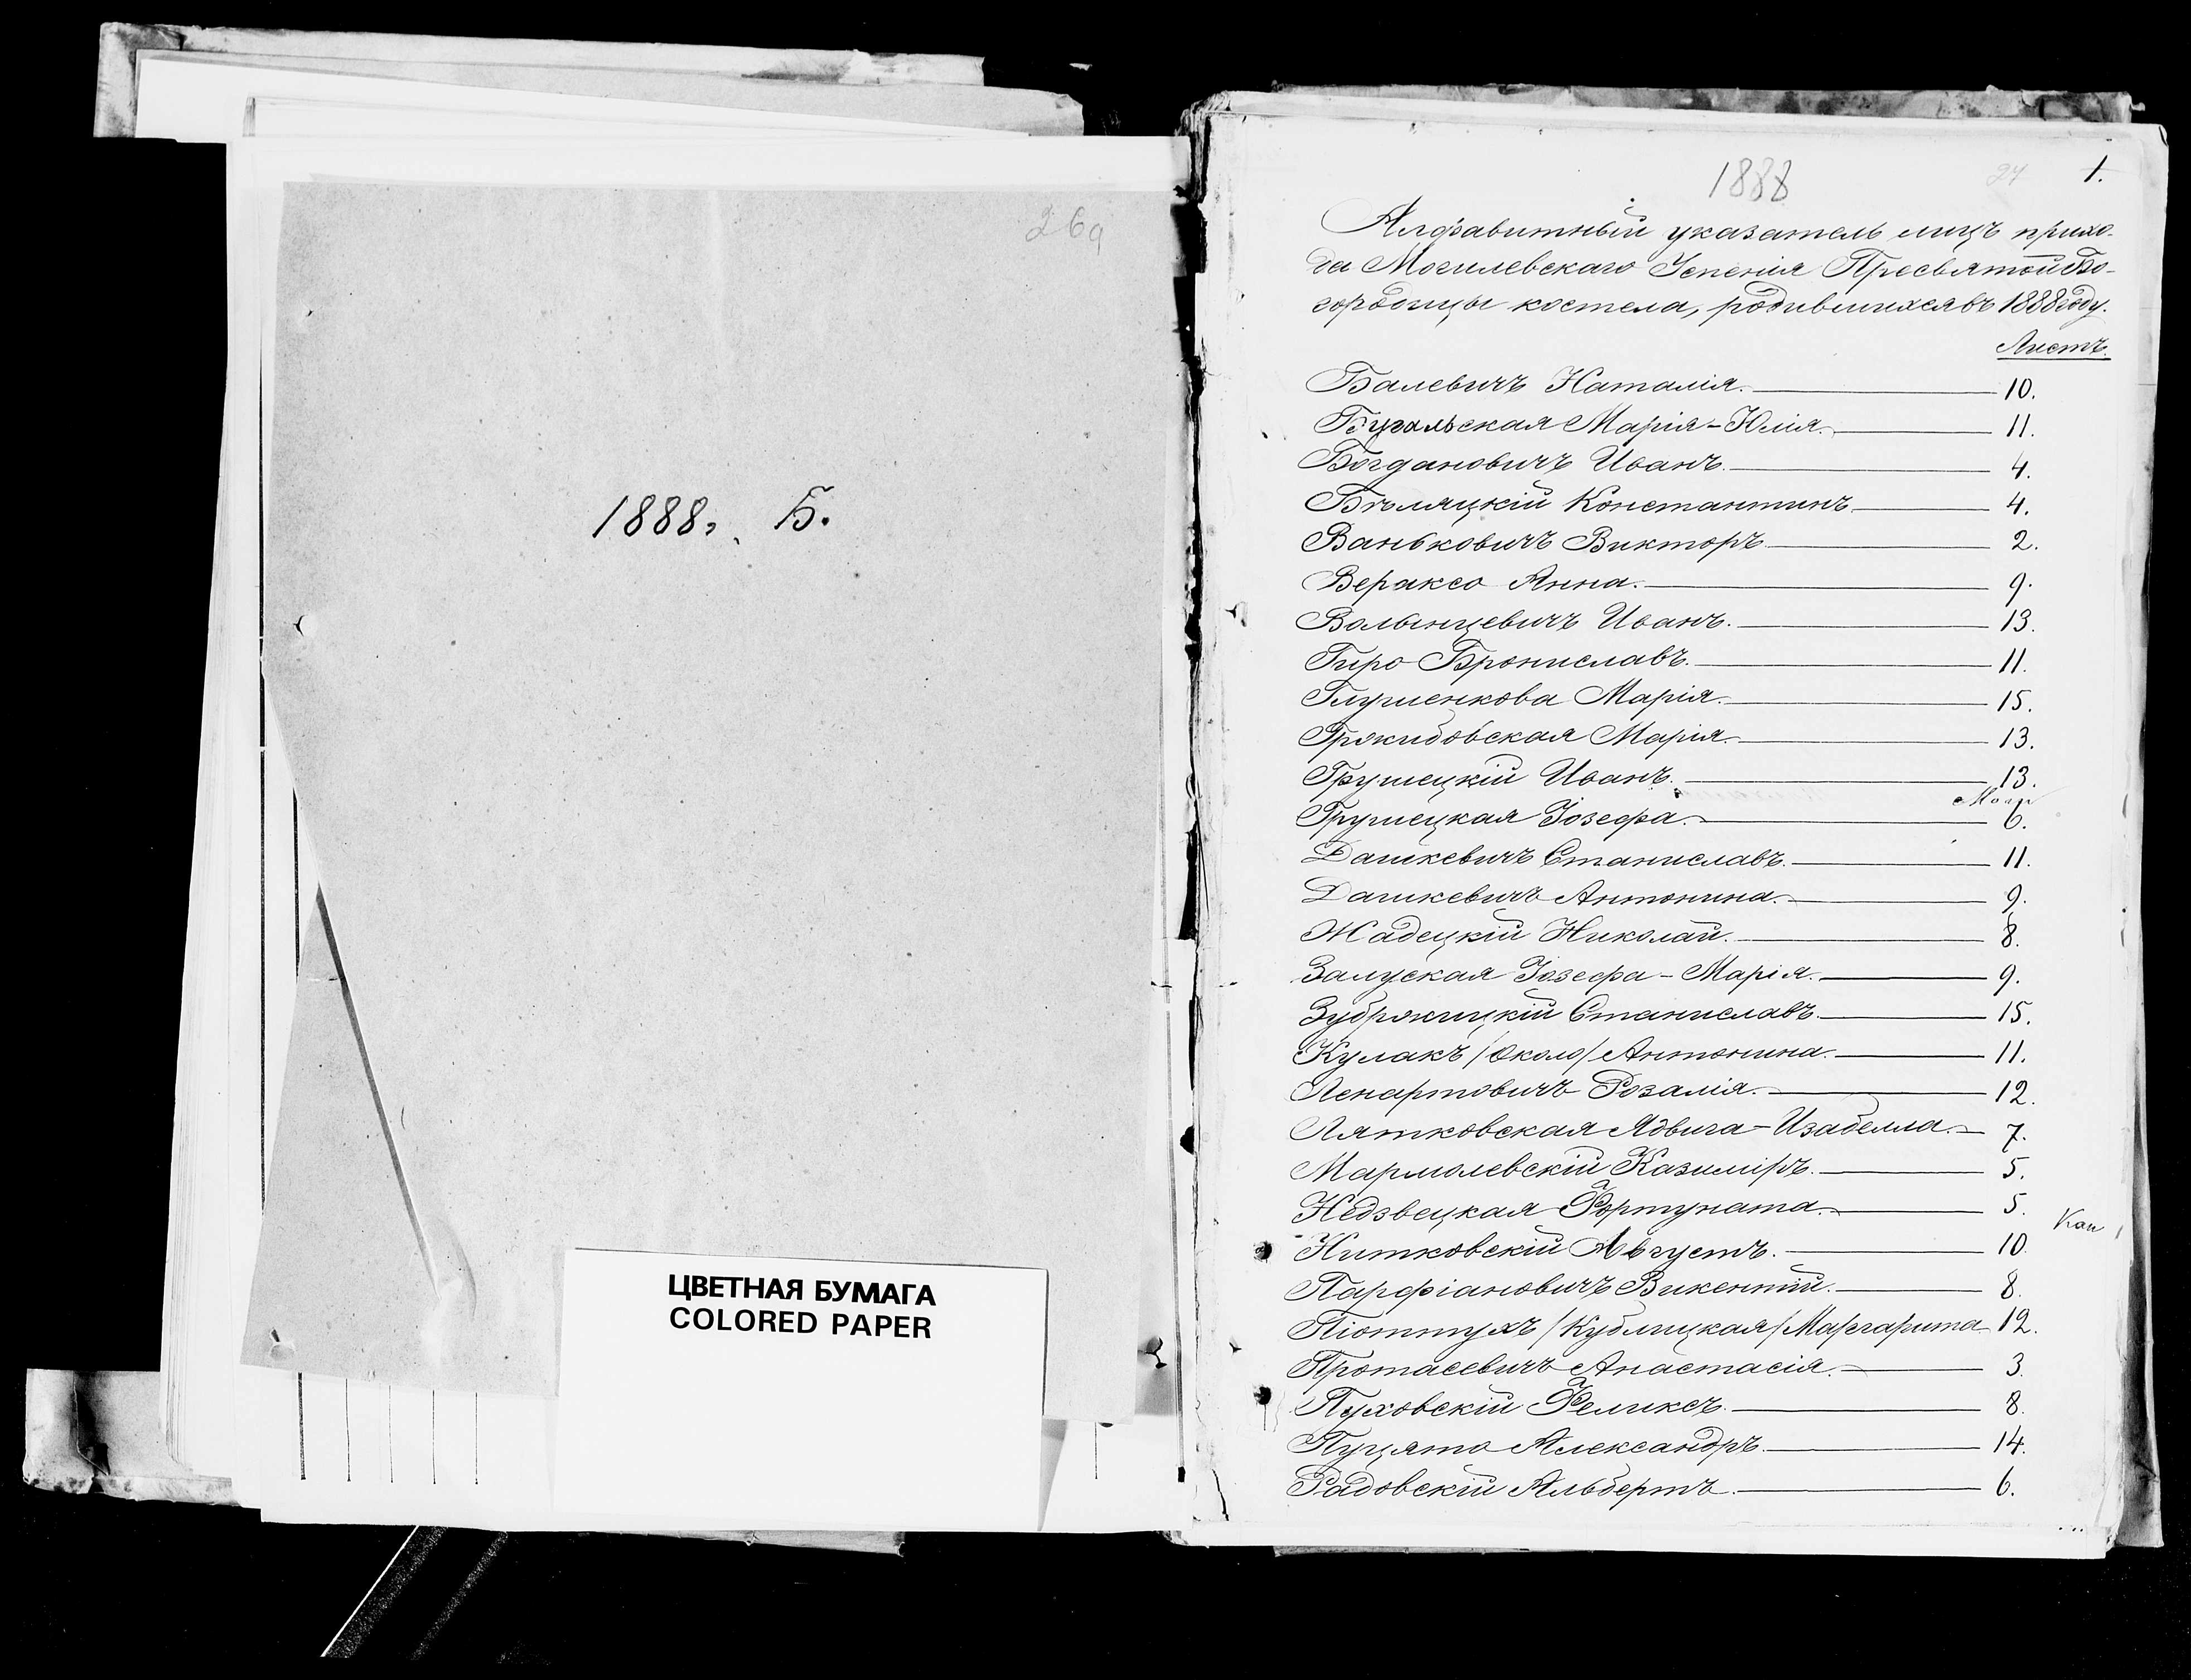 26а
1888, Б.
ЦВЕТНАЯ БУМАГА
COLORED PAPER
1888
27 1.
Алфавитный указатель лицъ прихо-
да Могилевскаго Успенія Пресвятой Бо-
городицы костела, родившихся въ 1888 году.
Листъ.
Балевичъ Наталія. 10.
Бугальская Марія-Юлія. 11.
Богдановичъ Иванъ. 4.
Бѣляцкій Константинъ. 4.
Ваньковичъ Викторъ. 2.
Вераксо Анна. 9.
Волынцевичъ Иванъ. 13.
Гиро Брониславъ. 11.
Глушенкова Марія. 15.
Гржидовская Марія. 13.
Грушецкій Иванъ. 13.
Грушецкая Іозефа. 6.
Дашкевичъ Станиславъ. 11.
Дашкевичъ Антонина. 9.
Жадецкій Николай. 8.
Залуская Іозефа-Марія. 9.
Зубржицкій Станиславъ. 15.
Кулакъ /Около/ Антонина. 11.
Ленартовичъ Розалія. 12.
Лятковская Ядвига-Изабелла. 7.
Мармолевскій Казиміръ. 5.
Недзвецкая Фортуната. 5.
Нитковскій Августъ. 10.
Парфіановичъ Викентій. 8.
Піоттухъ /Кублицкая/ Маргарита 12.
Протасевичъ Анастасія. 3.
Пуховскій Феликсъ. 8.
Пуцято Александръ. 14.
Радовскій Альбертъ. 6.